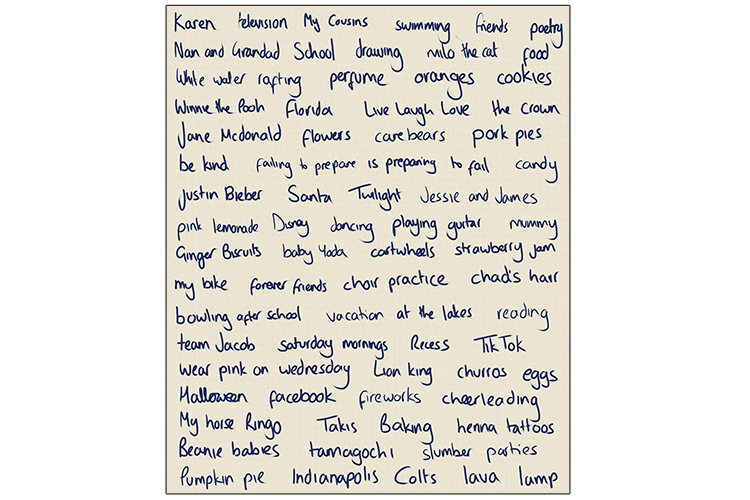 Karen television My Cousins swimming friends poetry
Nan and Grandad School drawing milo the cat food
White water rafting perfume oranges cookies
Winnie the Pooh Florida Live Laugh Love the crown
Jane Mcdonald flowers carebears pork pies
be kind failing to prepare is preparing to fail candy
Justin Bieber Santa Twilight Jessie and James
pink lemonade Disney dancing playing guitar mummy
Ginger Biscuits baby Yoda cartwheels strawberry jam
my bike forever friends choir practice chad's hair
bowling after school vacation at the lakes reading
team Jacob saturday mornings Recess TikTok
wear pink on wednesday Lion king churros eggs
Halloween facebook fireworks cheerleading
My horse Ringo Takis Baking henna tattoos
Beanie babies tamagochi slumber parties
Pumpkin pie Indianapolis Colts lava lamp